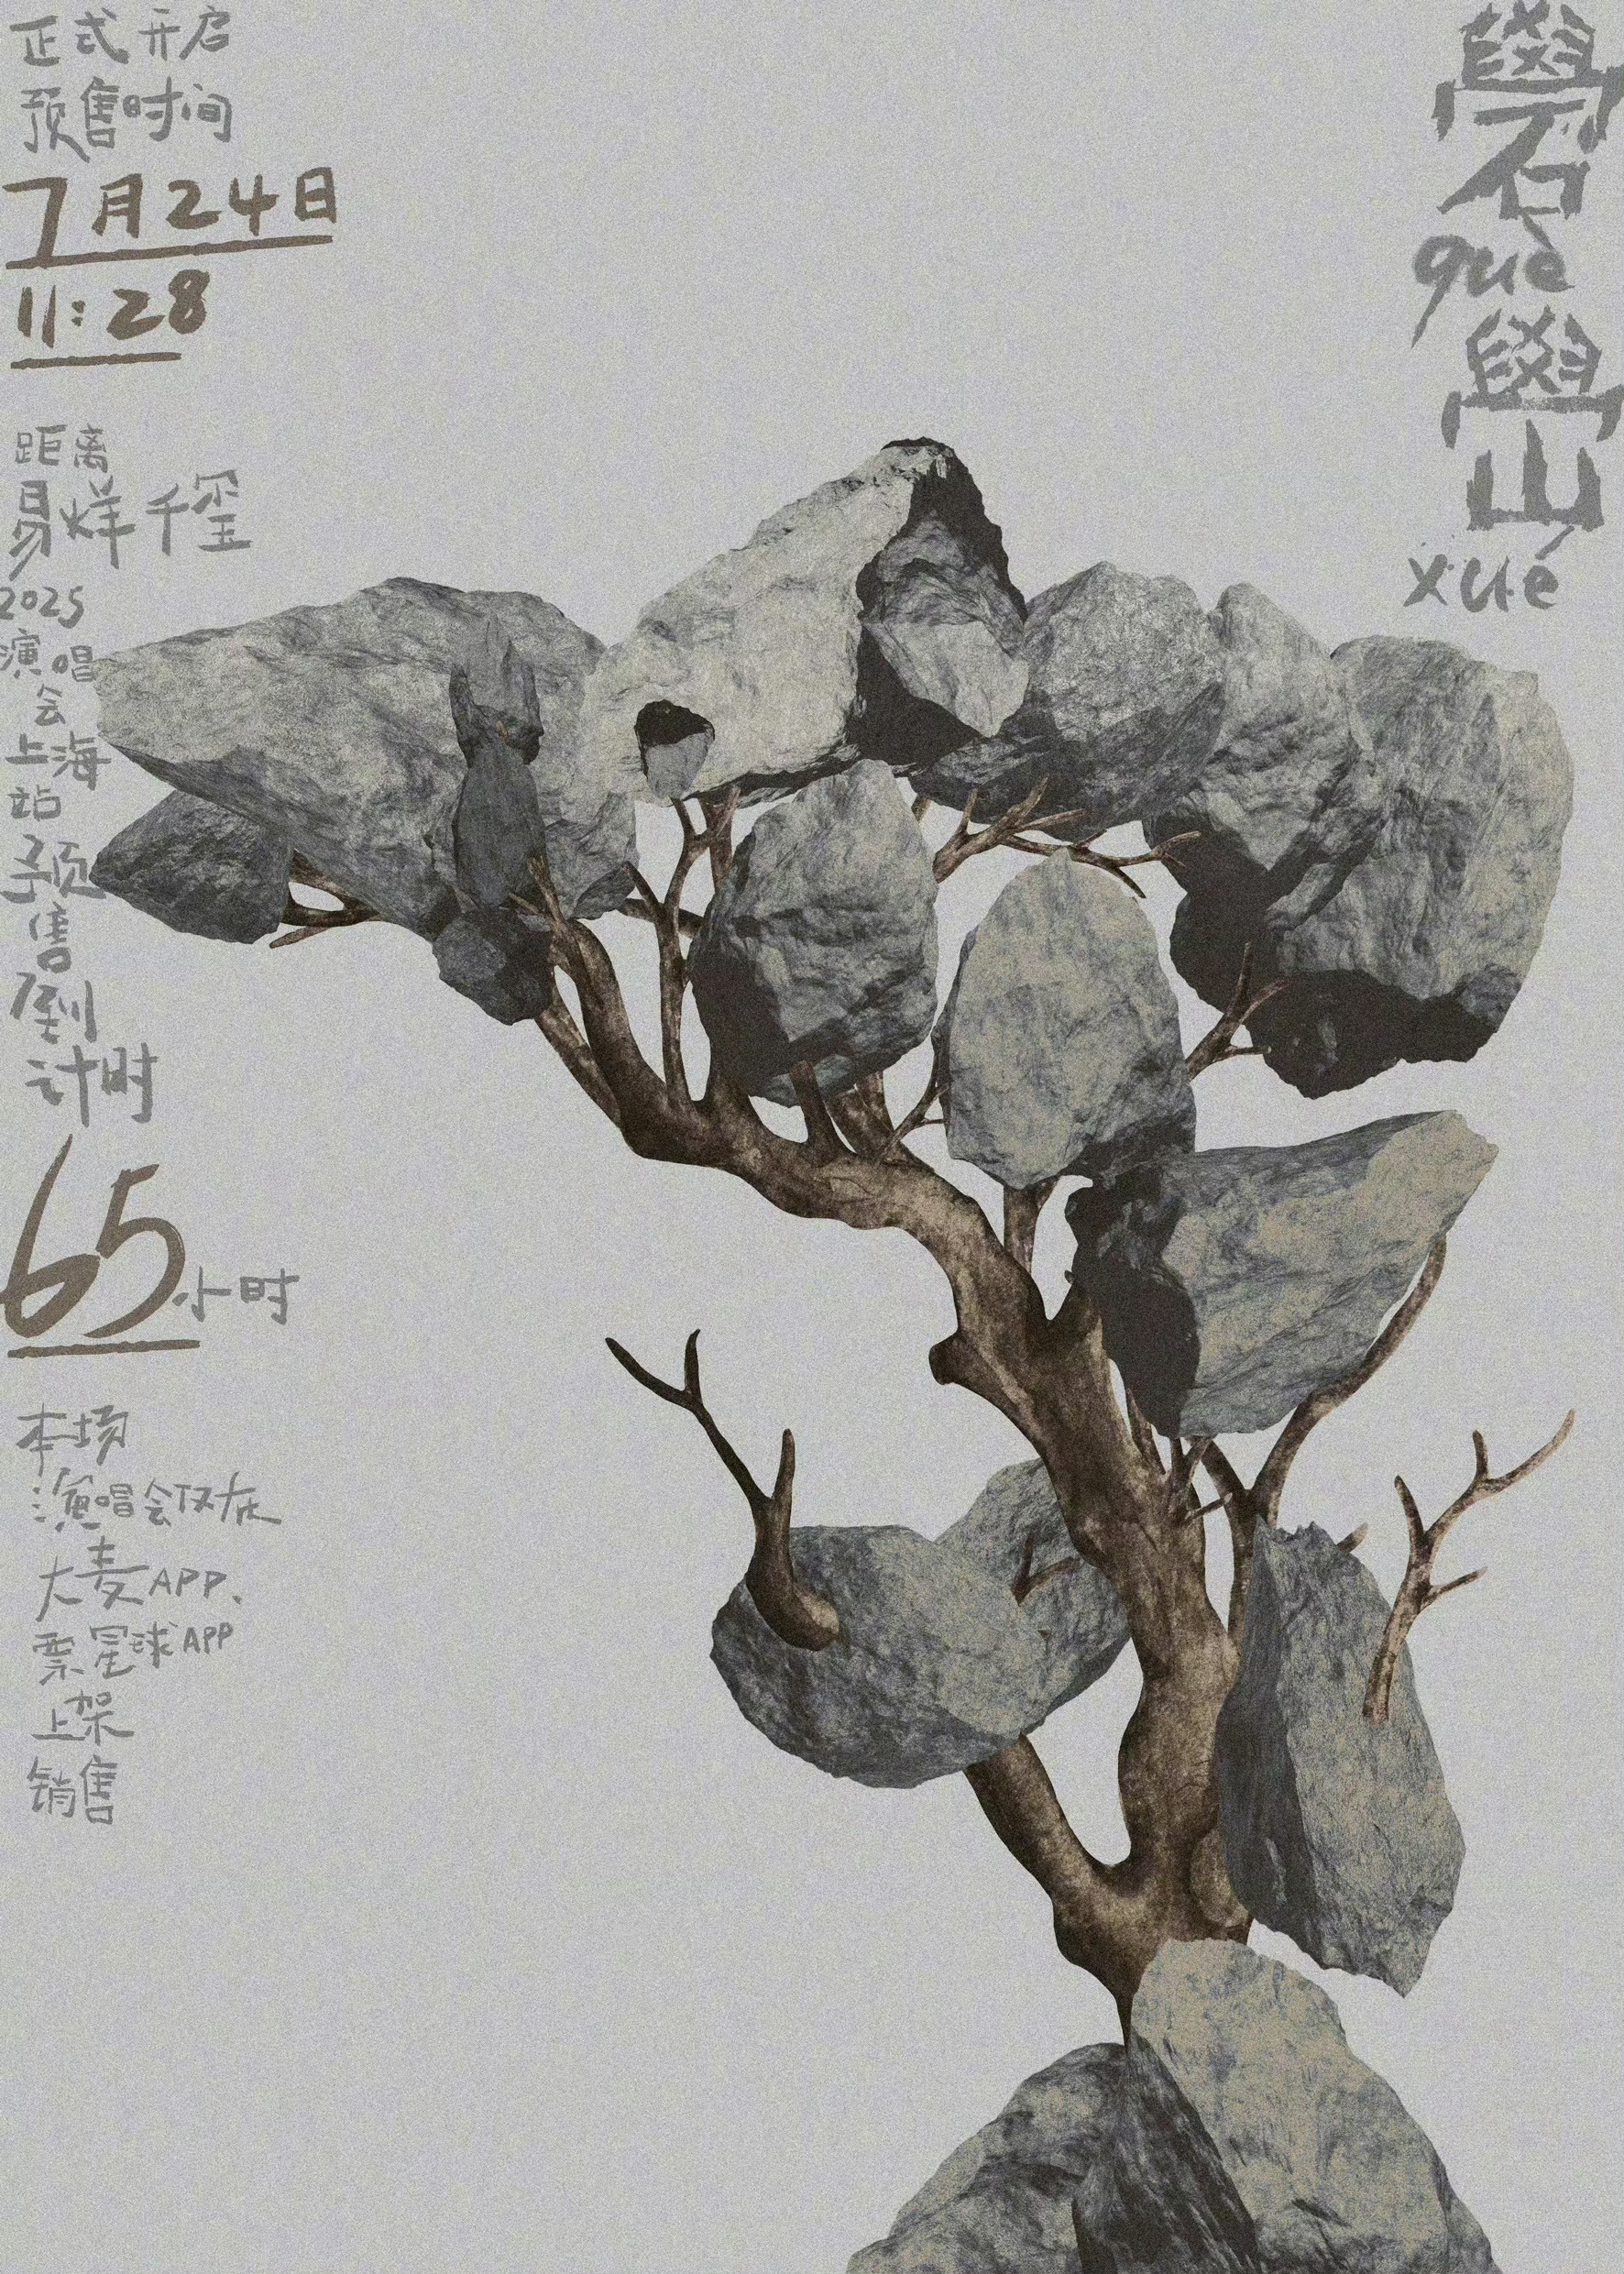 正式开启
预售时间
7月24日
11:28
距离
易烊千玺
2025
演唱
会
上海
站
预
售
倒
计时
65小时
本场
演唱会仅在
大麦APP、
票星球APP
上架
销售
礐
què
嶨
xué